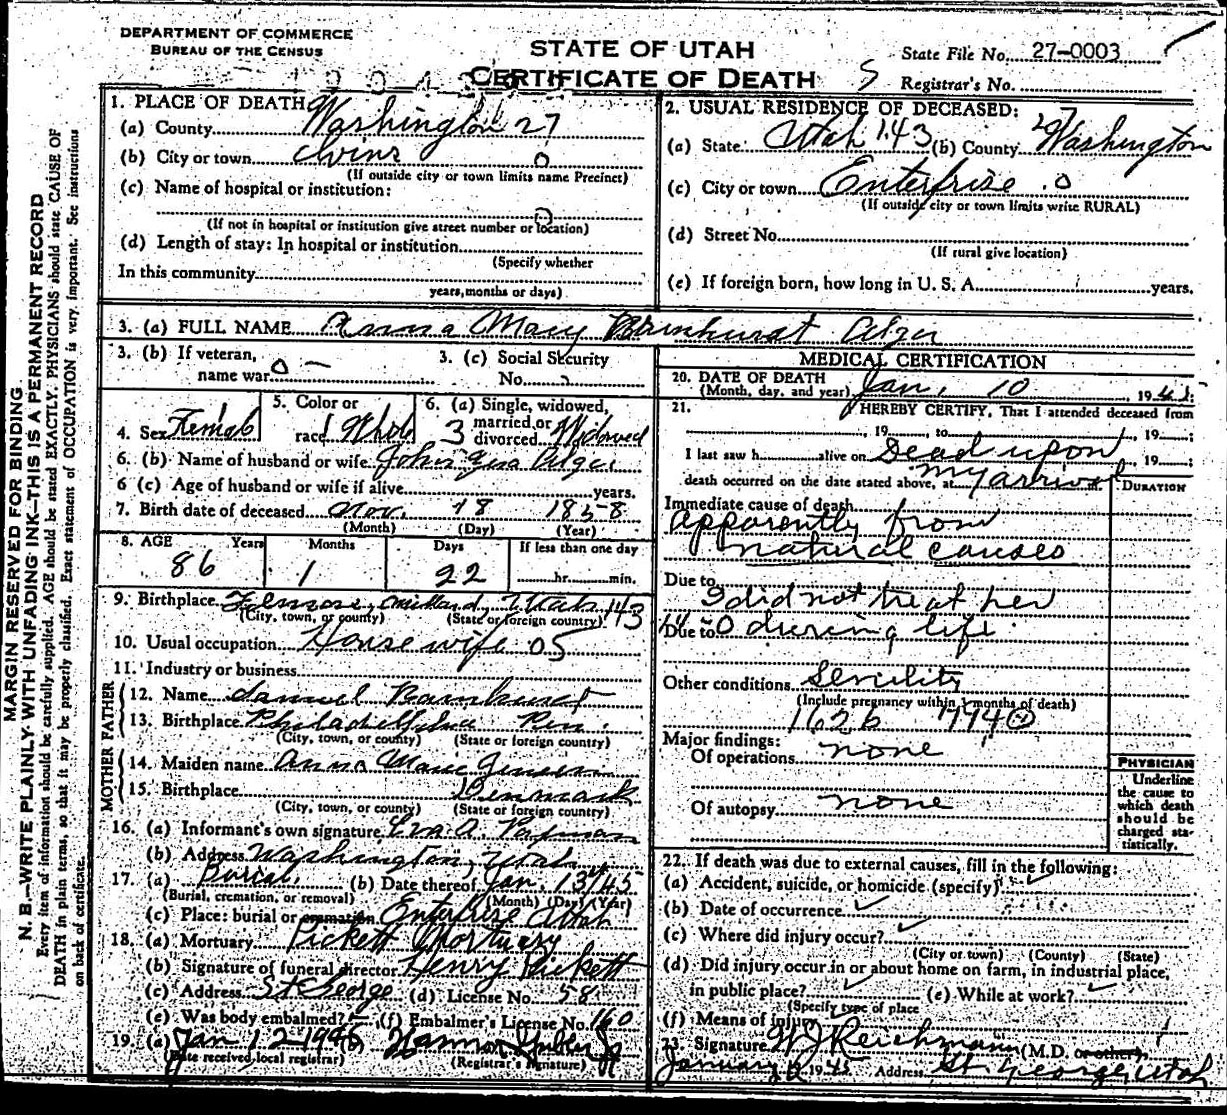 DEPARTMENT OF COMMERCE
BUREAU OF THE CENSUS
STATE OF UTAH
CERTIFICATE OF DEATH
State File No. 27-0003
Registrar's No.
MARGIN RESERVED FOR BINDING
N. B.—WRITE PLAINLY WITH UNFADING INK—THIS IS A PERMANENT RECORD
Every item of information should be carefully supplied. AGE should be stated EXACTLY. PHYSICIANS should state CAUSE OF
DEATH in plain terms, so that it may be properly classified. Exact statement of OCCUPATION is very important. See instructions
on back of certificate.
1. PLACE OF DEATH
(a) County Washington 27
(b) City or town Ivins 0
(If outside city or town limits name Precinct)
(c) Name of hospital or institution:
(If not in hospital or institution give street number or location)
(d) Length of stay: In hospital or institution
(Specify whether
In this community
years, months or days)
2. USUAL RESIDENCE OF DECEASED:
(a) State Utah 143 (b) County 27 Washington
(c) City or town Enterprise 0
(If outside city or town limits write RURAL)
(d) Street No.
(If rural give location)
(e) If foreign born, how long in U. S. A. years.
3. (a) FULL NAME Anna Mary Barnhurst Alger
3. (b) If veteran,
name war 0 —
3. (c) Social Security
No.
4. Sex Female
5. Color or
race White
6. (a) Single, widowed,
married, or
divorced Widowed
3
6. (b) Name of husband or wife John Alger
6 (c) Age of husband or wife if alive years.
7. Birth date of deceased Nov. 18 1858
(Month) (Day) (Year)
8. AGE Years Months Days If less than one day
86 1 22 hr. min.
9. Birthplace Utah 143
(City, town, or county) (State or foreign country)
10. Usual occupation Housewife 05
11. Industry or business
FATHER
12. Name Samuel Barnhurst
13. Birthplace Philadelphia Pen.
(City, town, or county) (State or foreign country)
MOTHER
14. Maiden name Anna Marie
15. Birthplace Denmark
(City, town, or county) (State or foreign country)
16. (a) Informant's own signature Eva A.
(b) Address Washington, Utah
17. (a) Burial. (b) Date thereof Jan. 13/45
(Burial, cremation, or removal) (Month) (Day) (Year)
(c) Place: burial or cremation Enterprise Utah
18. (a) Mortuary Pickett Mortuary
(b) Signature of funeral director Henry Pickett
(c) Address St George (d) License No. 58
(e) Was body embalmed? (f) Embalmer's License No. 160
19. (a) Jan 12 1945
(Date received, local registrar) (Registrar's signature)
MEDICAL CERTIFICATION
20. DATE OF DEATH
(Month, day, and year) Jan. 10, 194
21. I HEREBY CERTIFY, That I attended deceased from
, 19 , to , 19 ;
I last saw h alive on Dead upon , 19 ;
death occurred on the date stated above, at my arrival m.
DURATION
Immediate cause of death
apparently from
natural causes
Due to
I did not treat her
Due to during life
Other conditions Senility
(Include pregnancy within 3 months of death)
162b
Major findings:
Of operations none
Of autopsy none
PHYSICIAN
Underline
the cause to
which death
should be
charged sta-
tistically.
22. If death was due to external causes, fill in the following:
(a) Accident, suicide, or homicide (specify)
(b) Date of occurrence
(c) Where did injury occur?
(City or town) (County) (State)
(d) Did injury occur in or about home on farm, in industrial place,
in public place? (e) While at work?
(Specify type of place
(f) Means of injury
23. Signature W J Reichmann (M.D. or other)
January 1945 Address St. George, Utah